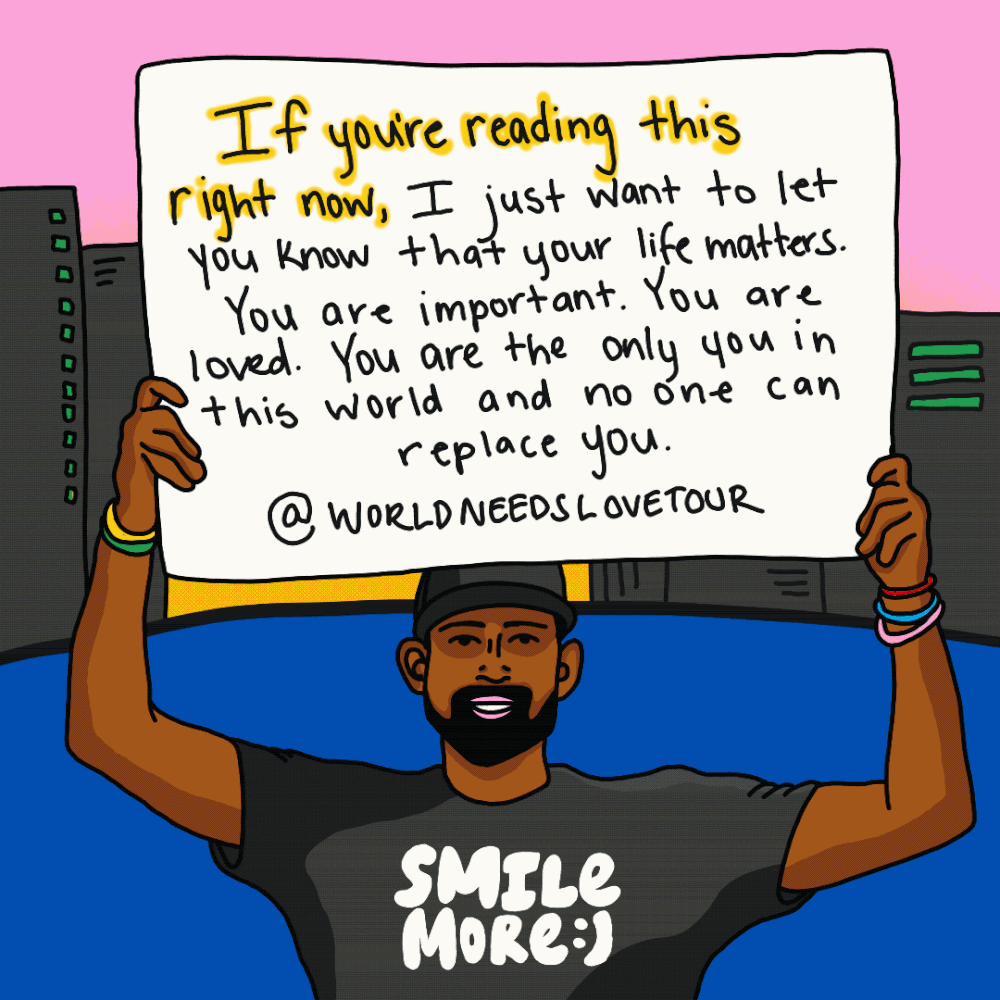 If you're reading this
right now, I just want to let
you know that your life matters.
You are important. You are
loved. You are the only you in
this world and no one can
replace you.
@WORLDNEEDSLOVETOUR
SMILE
MORE:)